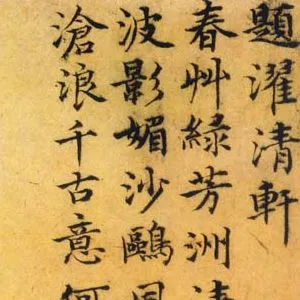 題濯清軒
春艸綠芳洲清
波影媚沙鷗
滄浪千古意何